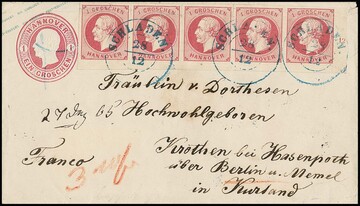 HANNOVER
EIN GROSCHEN
1 GROSCHEN 1 GROSCHEN 1 GROSCHEN 1 GROSCHEN 1 GROSCHEN
HANNOVER HANNOVER HANNOVER HANNOVER HANNOVER
SCHLADEN SCHLADEN SCHLADEN
28 12
Fräulein von Dorthesen
Hochwohlgeboren
Franco
Kröthen bei Hasenpoth
über Berlin u Memel
in Kurland